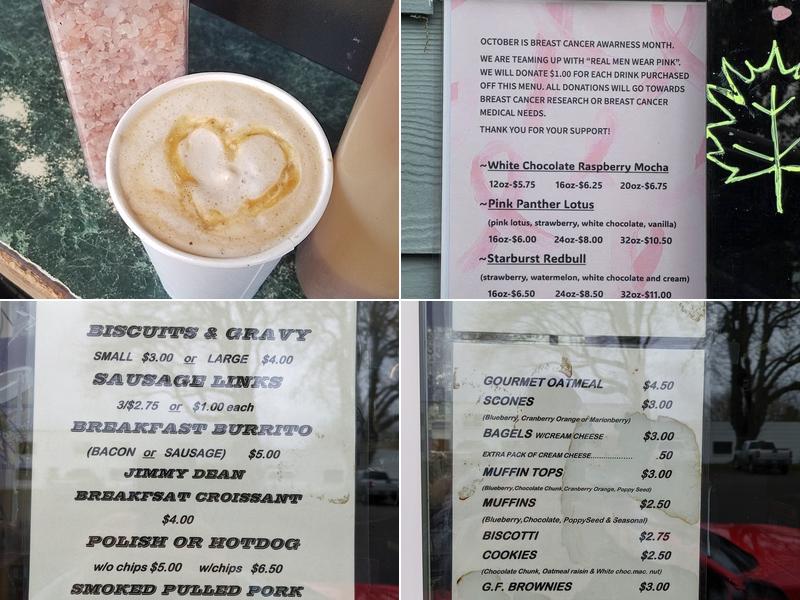 OCTOBER IS BREAST CANCER AWARNESS MONTH.
WE ARE TEAMING UP WITH “REAL MEN WEAR PINK”.
WE WILL DONATE $1.00 FOR EACH DRINK PURCHASED
OFF THIS MENU. ALL DONATIONS WILL GO TOWARDS
BREAST CANCER RESEARCH OR BREAST CANCER
MEDICAL NEEDS.
THANK YOU FOR YOUR SUPPORT!
~White Chocolate Raspberry Mocha
12oz-$5.75 16oz-$6.25 20oz-$6.75
~Pink Panther Lotus
(pink lotus, strawberry, white chocolate, vanilla)
16oz-$6.00 24oz-$8.00 32oz-$10.50
~Starburst Redbull
(strawberry, watermelon, white chocolate and cream)
16oz-$6.50 24oz-$8.50 32oz-$11.00
BISCUITS & GRAVY
SMALL $3.00 or LARGE $4.00
SAUSAGE LINKS
3/$2.75 or $1.00 each
BREAKFAST BURRITO
(BACON or SAUSAGE) $5.00
JIMMY DEAN
BREAKFSAT CROISSANT
$4.00
POLISH OR HOTDOG
w/o chips $5.00 w/chips $6.50
SMOKED PULLED PORK
GOURMET OATMEAL $4.50
SCONES $3.00
(Blueberry, Cranberry Orange or Marionberry)
BAGELS W/CREAM CHEESE $3.00
EXTRA PACK OF CREAM CHEESE.................. .50
MUFFIN TOPS $3.00
(Blueberry,Chocolate Chunk,Cranberry Orange, Poppy Seed)
MUFFINS $2.50
(Blueberry,Chocolate, PoppySeed & Seasonal)
BISCOTTI $2.75
COOKIES $2.50
(Chocolate Chunk, Oatmeal raisin & White choc.mac. nut)
G.F. BROWNIES $3.00